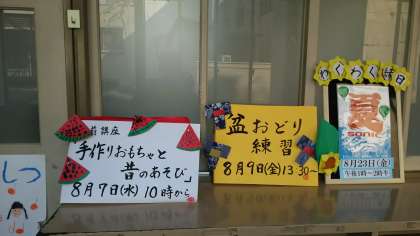 しつ
講座
「手作りおもちゃと
昔のあそび」
8月7日(水) 10時から
「盆おどり
練習」
8月9日(金)13:30~
わくわく縁日
夏
SONIC
8月23日(金)
午後1時~2時半